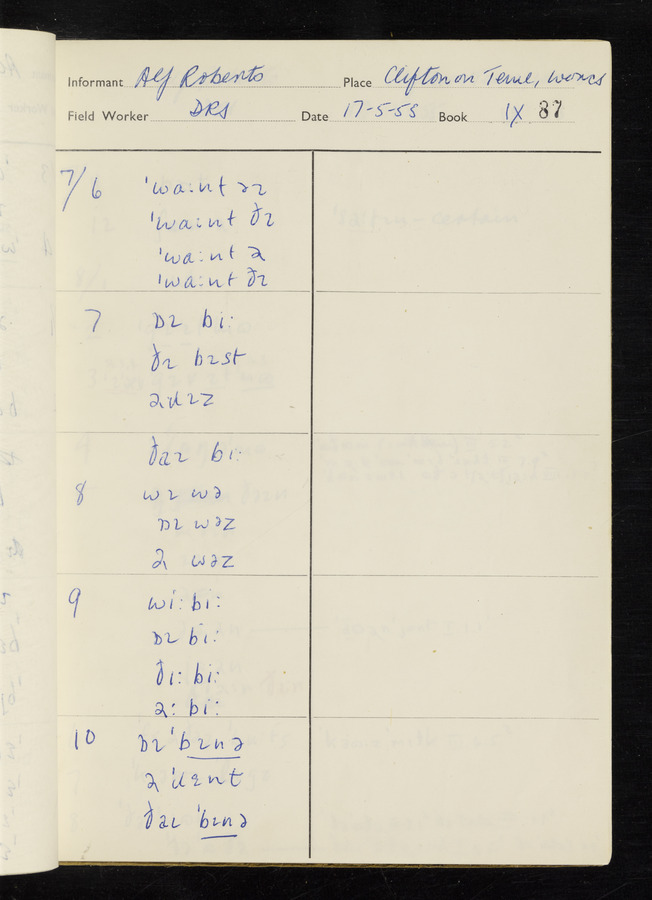 Informant Alf Roberts Place Clifton on Teme, Worcs
Field Worker DRS Date 17-5-55 Book IX 87
7/6 ˈwaːɪnt əɪ
ˈwaːɪnt ðɪ
ˈwaːɪnt ə
ˈwaːɪnt ðɪ
7 ɒɪ biː
ðɪ bɪst
ðaɪ biː
8 wɪ wə
ɒɪ wəz
ə wəz
9 wiː biː
ɒɪ biː
ðɪː biː
əː biː
10 ɒɪ ˈbɪnə
ðaɪ ˈbɪnə